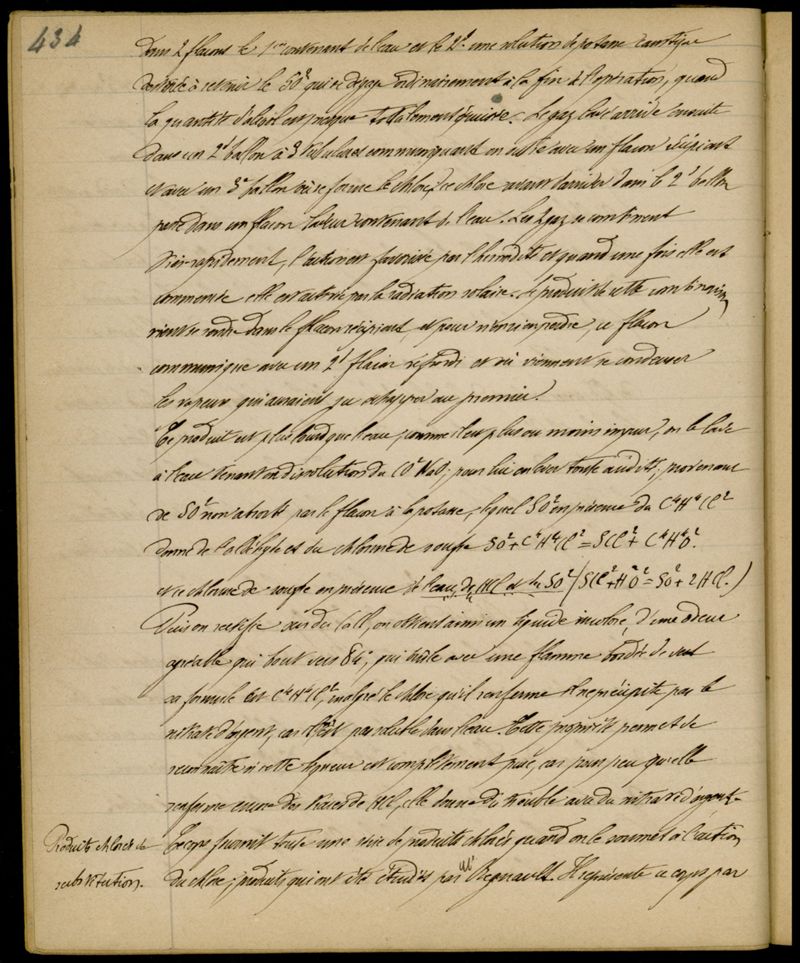 434
dans 2 flacons le 1er contenant de l'eau et le 2e une solution de potasse caustique
destinée à retenir le SO² qui se dégage ordinairement à la fin de l'opération, quand
la quantité d'alcool est presque totalement épuisée. Le gaz lavé arrive ensuite
dans un 2e ballon à 3 tubulures communiquant en outre avec un flacon récipient
et avec un 3e ballon où se forme le chlore, ce chlore avant d'arriver dans le 2e ballon
passe dans un flacon laveur contenant de l'eau. Les 2 gaz se combinent
très rapidement, l'action est favorisée par l'humidité et quand une fois elle est
commencée elle est activée par la radiation solaire. Le produit de cette combinaison
vient se rendre dans le flacon récipient, et pour n'en rien perdre, ce flacon
communique avec un 2e flacon refroidi et où viennent se condenser
les vapeurs qui auraient pu échapper au premier.
Ce produit est plus lourd que l'eau, comme il est plus ou moins impur, on le lave
à l'eau tenant en dissolution du CO² NaO, pour lui enlever toute acidité, provenant
de SO² non absorbé par le flacon à la potasse, lequel SO² en présence du C⁴H⁴Cl²
donne de l'aldéhyde et du chlorure de soufre SO² + C⁴H⁴Cl² = SCl² + C⁴H⁴O².
et ce chlorure de soufre en présence de l'eau, de HCl et du SO² (SCl² + H²O² = SO² + 2HCl.)
Puis on rectifie sur du CaCl, on obtient ainsi un liquide incolore, d'une odeur
agréable qui bout vers 84°, qui brûle avec une flamme bordée de vert
sa formule est C⁴H⁴Cl², malgré le chlore qu'il renferme il ne précipite pas le
nitrate d'argent, car il n'est pas soluble dans l'eau. Cette propriété permet de
reconnaître si cette liqueur est complètement pure, car pour peu qu'elle
renferme encore des traces de HCl, elle donne du trouble avec du nitrate d'argent.
Produits chlorés de
substitution.
Ce corps fournit toute une série de produits chlorés quand on le soumet à l'action
du chlore ; produits qui ont été étudiés par Mr Regnault. Il représente ce corps par